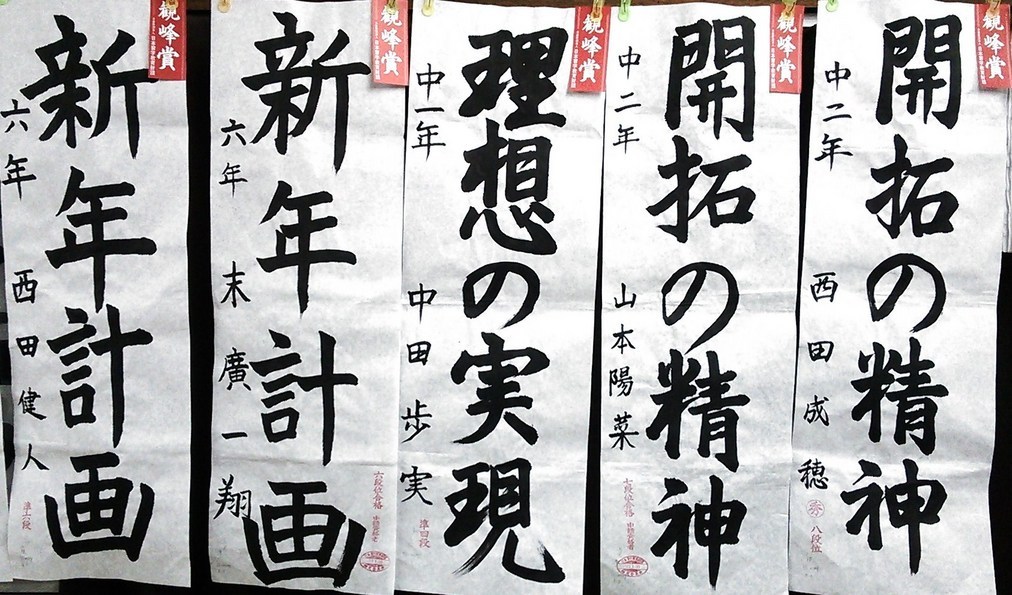 観峰賞
開拓の精神
中二年 西田成穂
八段位
観峰賞
開拓の精神
中二年 山本陽菜
七段位合格
観峰賞
理想の実現
中一年 中田歩実
准四段
観峰賞
新年計画
六年 末廣一翔
六段位合格
観峰賞
新年計画
六年 西田健人
准六段